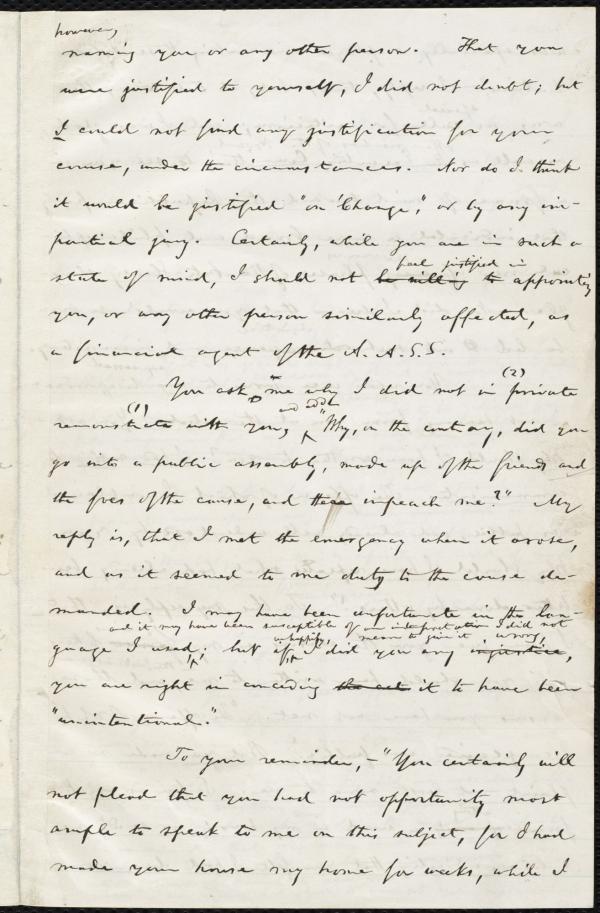 however,
naming you or any other person. That you
were justified to yourself, I did not doubt; but
I could not find any justification for your
course, under the circumstances. Nor do I think
it would be justified "on 'Change," or by any im-
partial jury. Certainly, while you are in such a
feel justified in
state of mind, I should not be willing to appointing
you, or any other person similarly affected, as
a financial agent of the A. A. S. S.
You ask me why I did not in private (2)
remonstrate (1) with you, and add "Why, on the contrary, did you
go into a public assembly, made up of the friends and
the foes of the cause, and there impeach me?" My
reply is, that I met the emergency when it arose,
and as it seemed to me duty to the cause de-
manded. I may have been unfortunate in the lan-
and it may have been susceptible of an interpretation I did not
unhappily, mean to give it, wrong,
guage I used; but if I did you any injustice,
you are right in conceding it to have been
"unintentional."
To your reminder,—"You certainly will
not plead that you had not opportunity most
ample to speak to me on this subject, for I had
made your house my home for weeks, while I